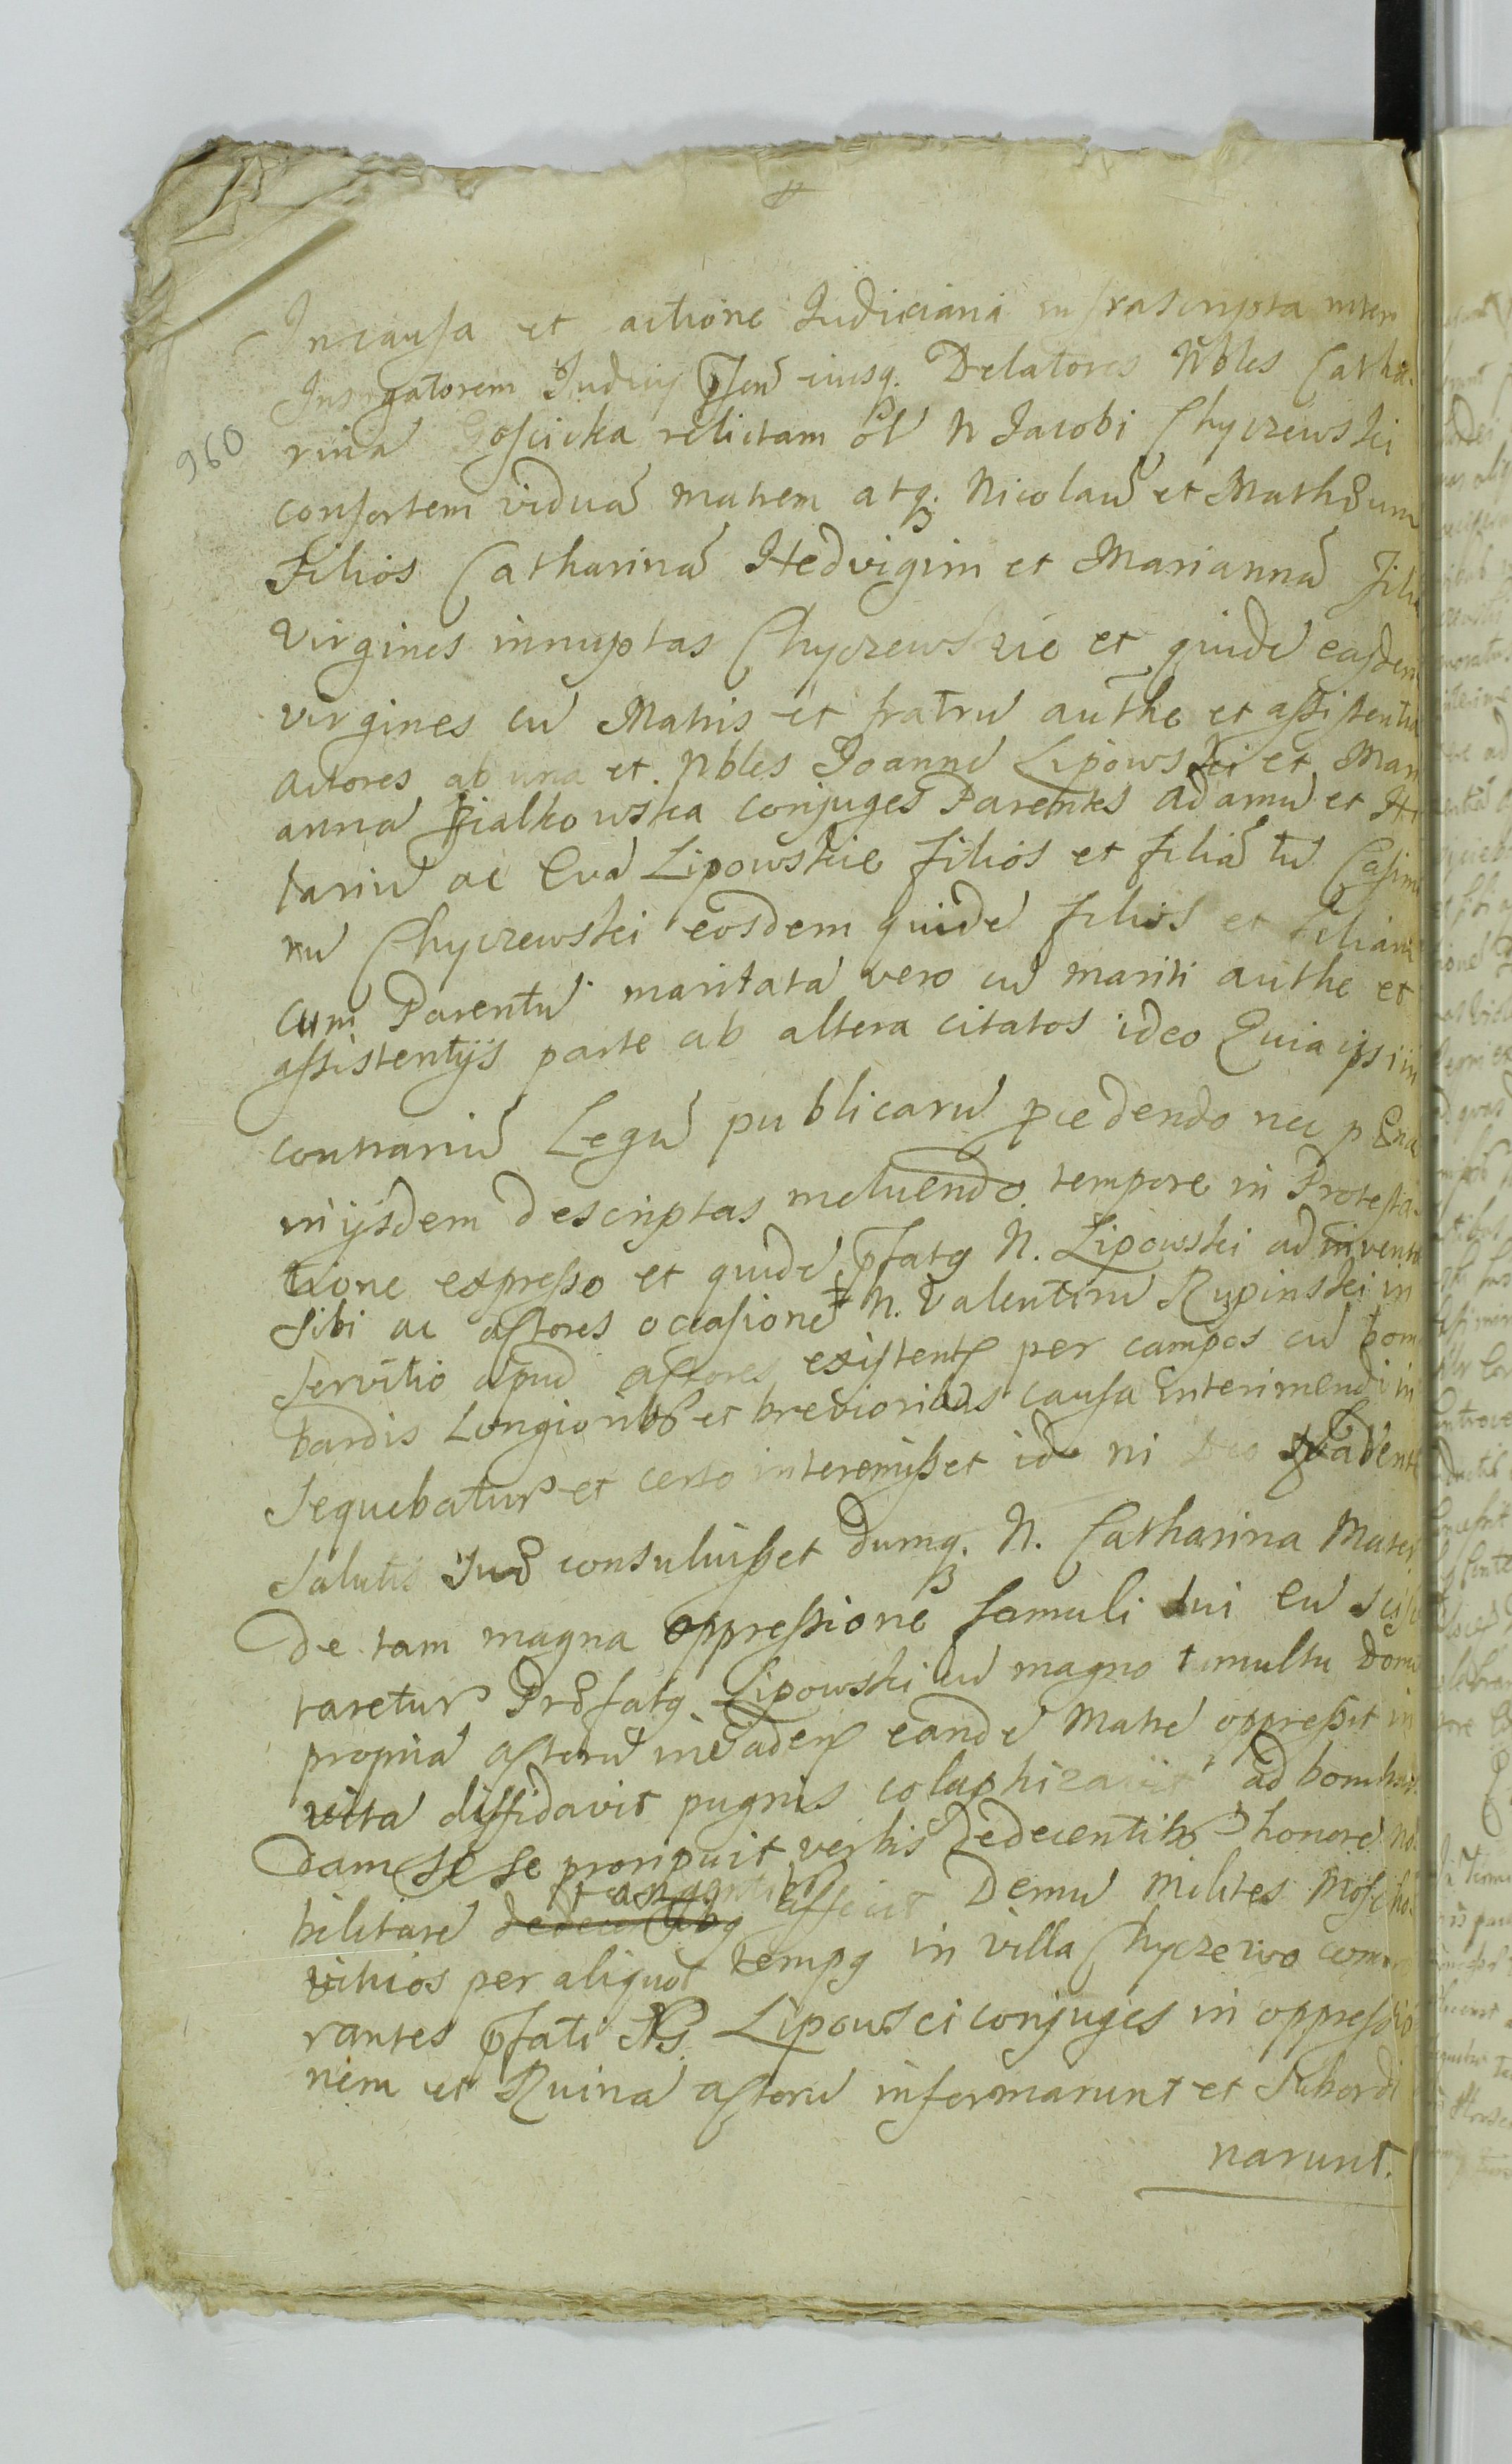 In causa et actione Judiciaria infrascripta inter
Instigatorem Judicij pñem eiusq. Delatores Nbles Catha-
rinã Gościcka relictam ol N Jacobi Chyczewski
consortem viduã matrem atq. Nicolaũ et Mathæum
Filios Catharinã Hedvigim et Mariannã Filia
virgines innuptas Chyczewskie et quidẽ easdem
virgines cũ Matris et fratrũ authe et assistentia
Actores ab una et Nbles Joannẽ Lipowski et Mari
annã Fialkowska conjuges Parentes Adamũ et
tariũ ac Evã Lipowskie filios et filiã tũ Casimi
rũ Chyczewski eosdem quidẽ filios et filiam
cum Parentũ maritatã vero cũ mariti authe et
assistentijs parte ab altera citatos ideo Quia ipsi in
contrariũ Legũ publicarũ pcedendo nec pænas
in ijsdem descriptas metuendo tempore in Protesta-
tione expresso et quidẽ pfatq N. Lipowski ad inventa
sibi ac actores occasione N. Valentinũ Rypinski in
servitio apud actores existentẽ per campos cũ bom
bardis Longioribq et brevioribus causa interimendi in
sequebatur et certo interemisset idẽ ni Deo suadente
Saluti suæ consuluisset dumq. N. Catharina Mater
de tam magna oppressione famuli sui eũ scisci
taretur Præfatq Lipowski cũ magno tumultu domũ
propriã actorũ invadens eandẽ Matrẽ oppressit in
vitã diffidavit pugnis colaphizavit ad bombar-
dam se se proripuit verbis dedecentibq honorẽ no-
bilitarẽ affecit Demũ milites Mosch
vitios per aliquot tempq in villa Chyczewo com
rantes pfati NG Lipowsci conjuges in oppressio
nem et Ruinã actorũ informarunt et subordi
narunt.
960